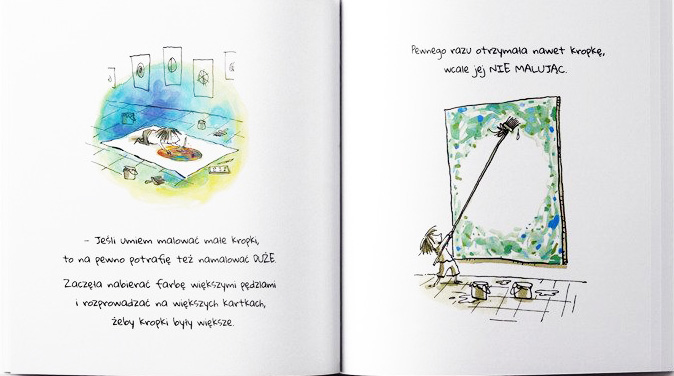 – Jeśli umiem malować małe kropki,
to na pewno potrafię też namalować DUŻE.
Zaczęła nabierać farbę większymi pędzlami
i rozprowadzać na większych kartkach,
żeby kropki były większe.
Pewnego razu otrzymała nawet kropkę,
wcale jej NIE MALUJĄC.